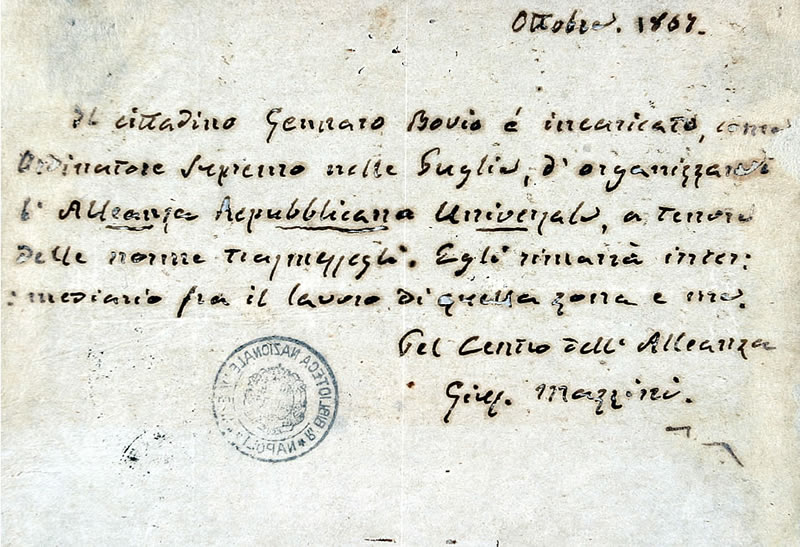 Ottobre. 1867.
Il cittadino Gennaro Bovio é incaricato, come
Ordinatore Supremo nelle Puglie, d'organizzare
l'Alleanza Repubblicana Universale, a tenore
delle norme trasmessegli. Egli rimarrà inter:
:mediario fra il lavoro di quella zona e me.
Pel Centro dell'Alleanza
Gius. Mazzini.
BIBLIOTECA NAZIONALE
NAPOLI